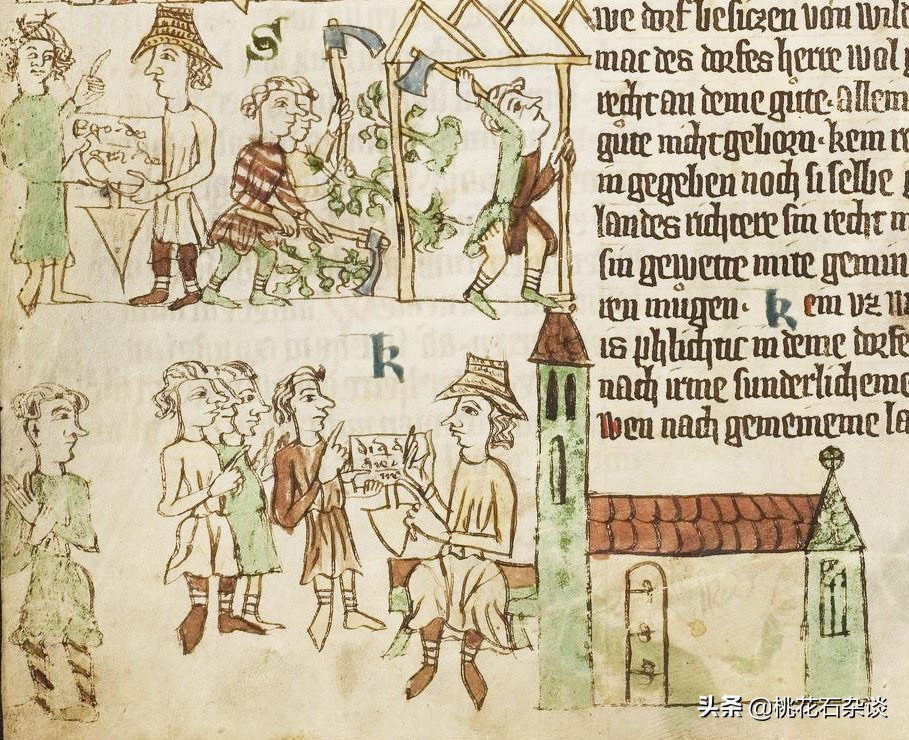 we dorf besiczen von wild
mac des dorfes herre wol
recht an deme gute. allem
gute nicht geborn. kem re
in gegeben noch si selbe
landes richtere sin recht
sin gewette mite gemin
ren mugen. kem vz w
is phlichtic in deme dorfe
nach irme sunderlicheme
wen nach gemeineme la
S
k
头条 @桃花石杂谈